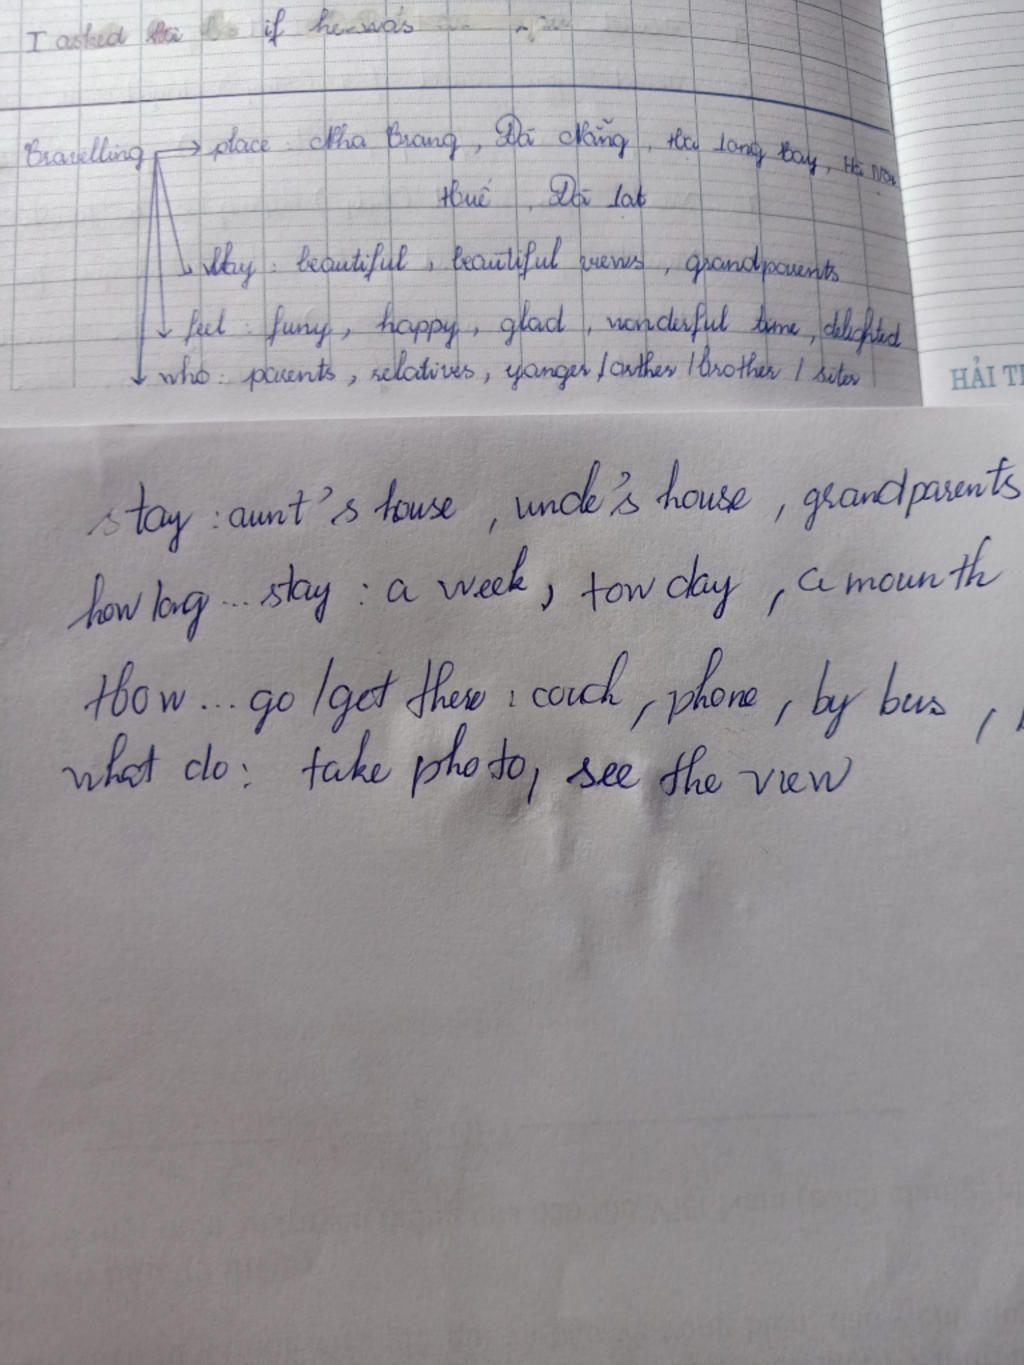 I asked if he was
Travelling → place : Nha Trang, Đà Nẵng, Hạ Long Bay, Hà Nội
Huế, Đà Lat
Why : beautiful, beautiful views, grandparents
feel : funy, happy, glad, wonderful time, delighted
who : parents, relatives, yanger / / brother / siter
HẢI T
stay : aunt's house, uncle's house, grandparents
how long ... stay : a week, tow day, a mounth
How ... go / get there : couch, phone, by bus,
what do : take photo, see the view